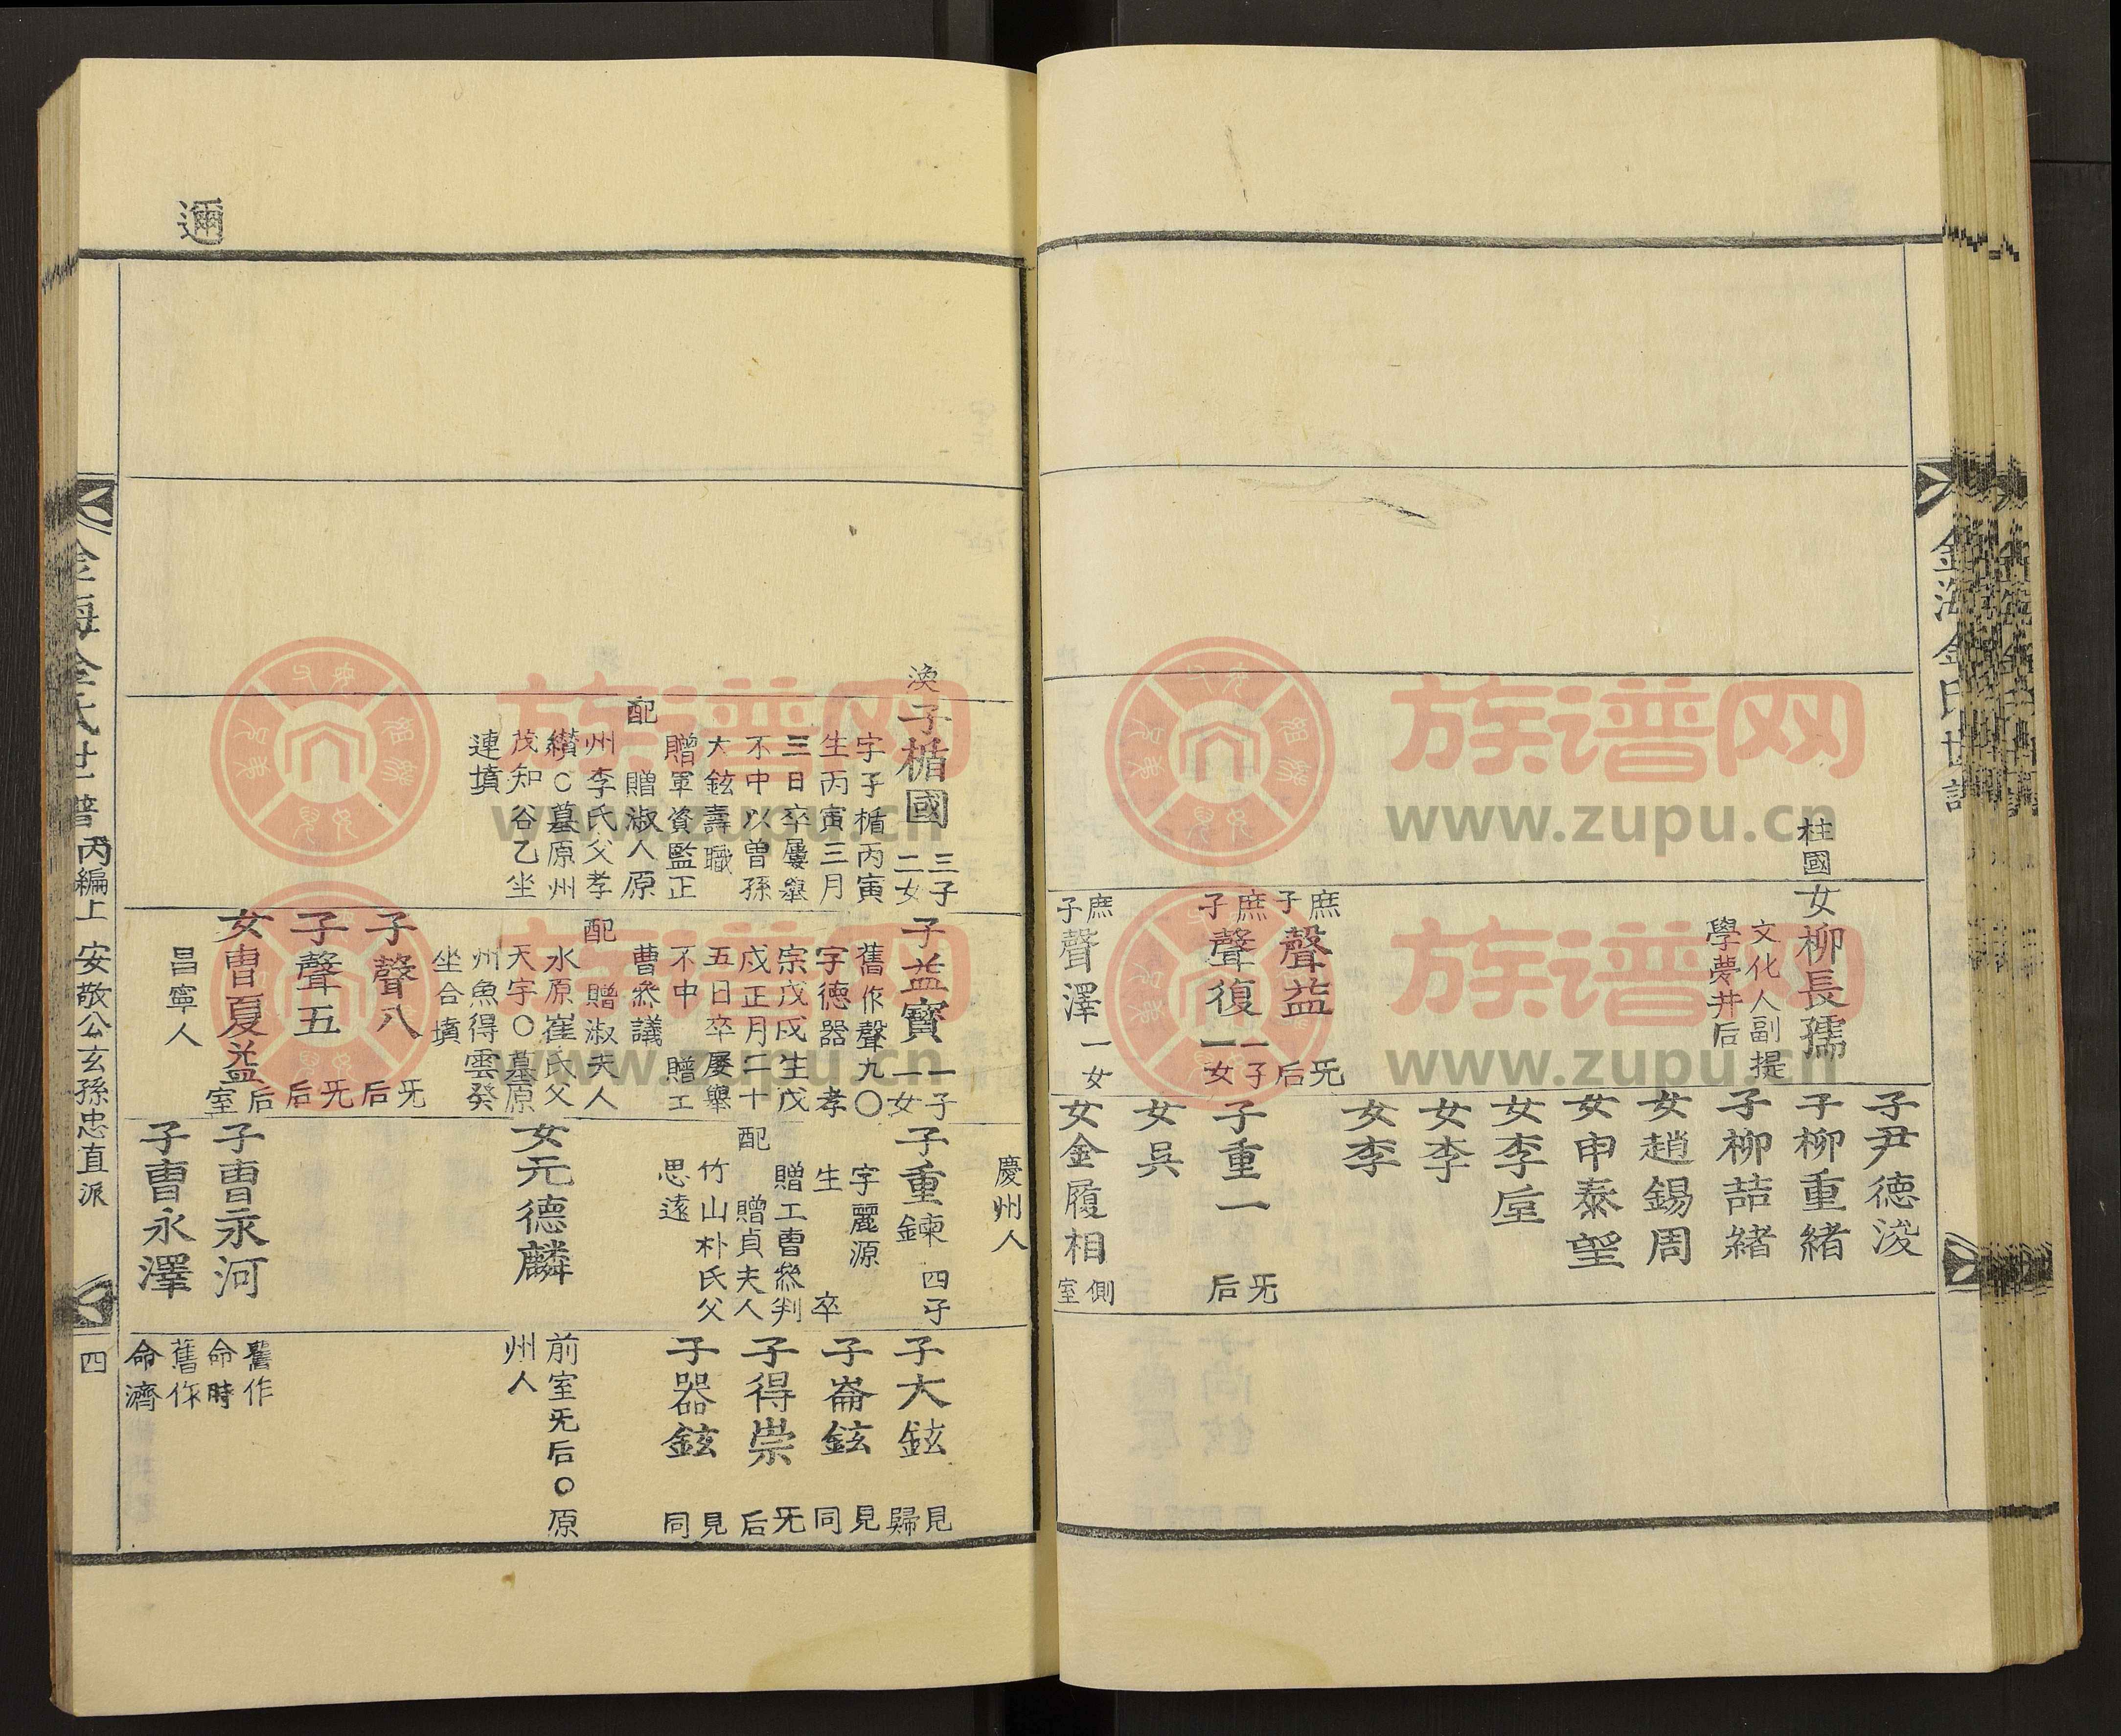 金海金氏世譜
柱國
女柳長孺
文化人副提
學夢井后
庶子聲益 旡后
庶子聲復 一子一女
庶子聲澤 一女
子尹德浚
子柳重緒
子柳喆緒
女趙錫周
女申泰望
女李垕
女李
女李
子重一 旡后
女吳
女金履相 側室
慶州人
渙
子楯國 三子二女
字子楯丙寅
生丙寅三月
三日卒屢舉
不中以曾孫
大鉉壽職
贈軍資監正
配 贈淑人原
州李氏父孝
纘○墓原州
茂知谷乙坐
連墳
子益寶 一子一女
舊作聲九○
字德器 孝
宗戊戌生戊
戌正月二十
五日卒屢舉
不中 贈工
曹叅議
配 贈淑夫人
水原崔氏父
天字○墓原
州魚得雲癸
坐合墳
子聲八 旡后
子聲五 旡后
女曺夏益 后室
昌寧人
子重鍊 四子
字麗源
生 卒
贈工曹叅判
配 贈貞夫人
竹山朴氏父
思遠
女元德麟
子曺永河
子曺永澤
子大鉉 見歸
子崙鉉 見同
子得崇 旡后
子器鉉 見同
前室旡后○原
州人
舊作
命時
舊作
命濟
邇
金海金氏世譜 丙編上 安敬公玄孫忠直派 四
族谱网
www.zupu.cn
族谱网
www.zupu.cn
族谱网
www.zupu.cn
族谱网
www.zupu.cn